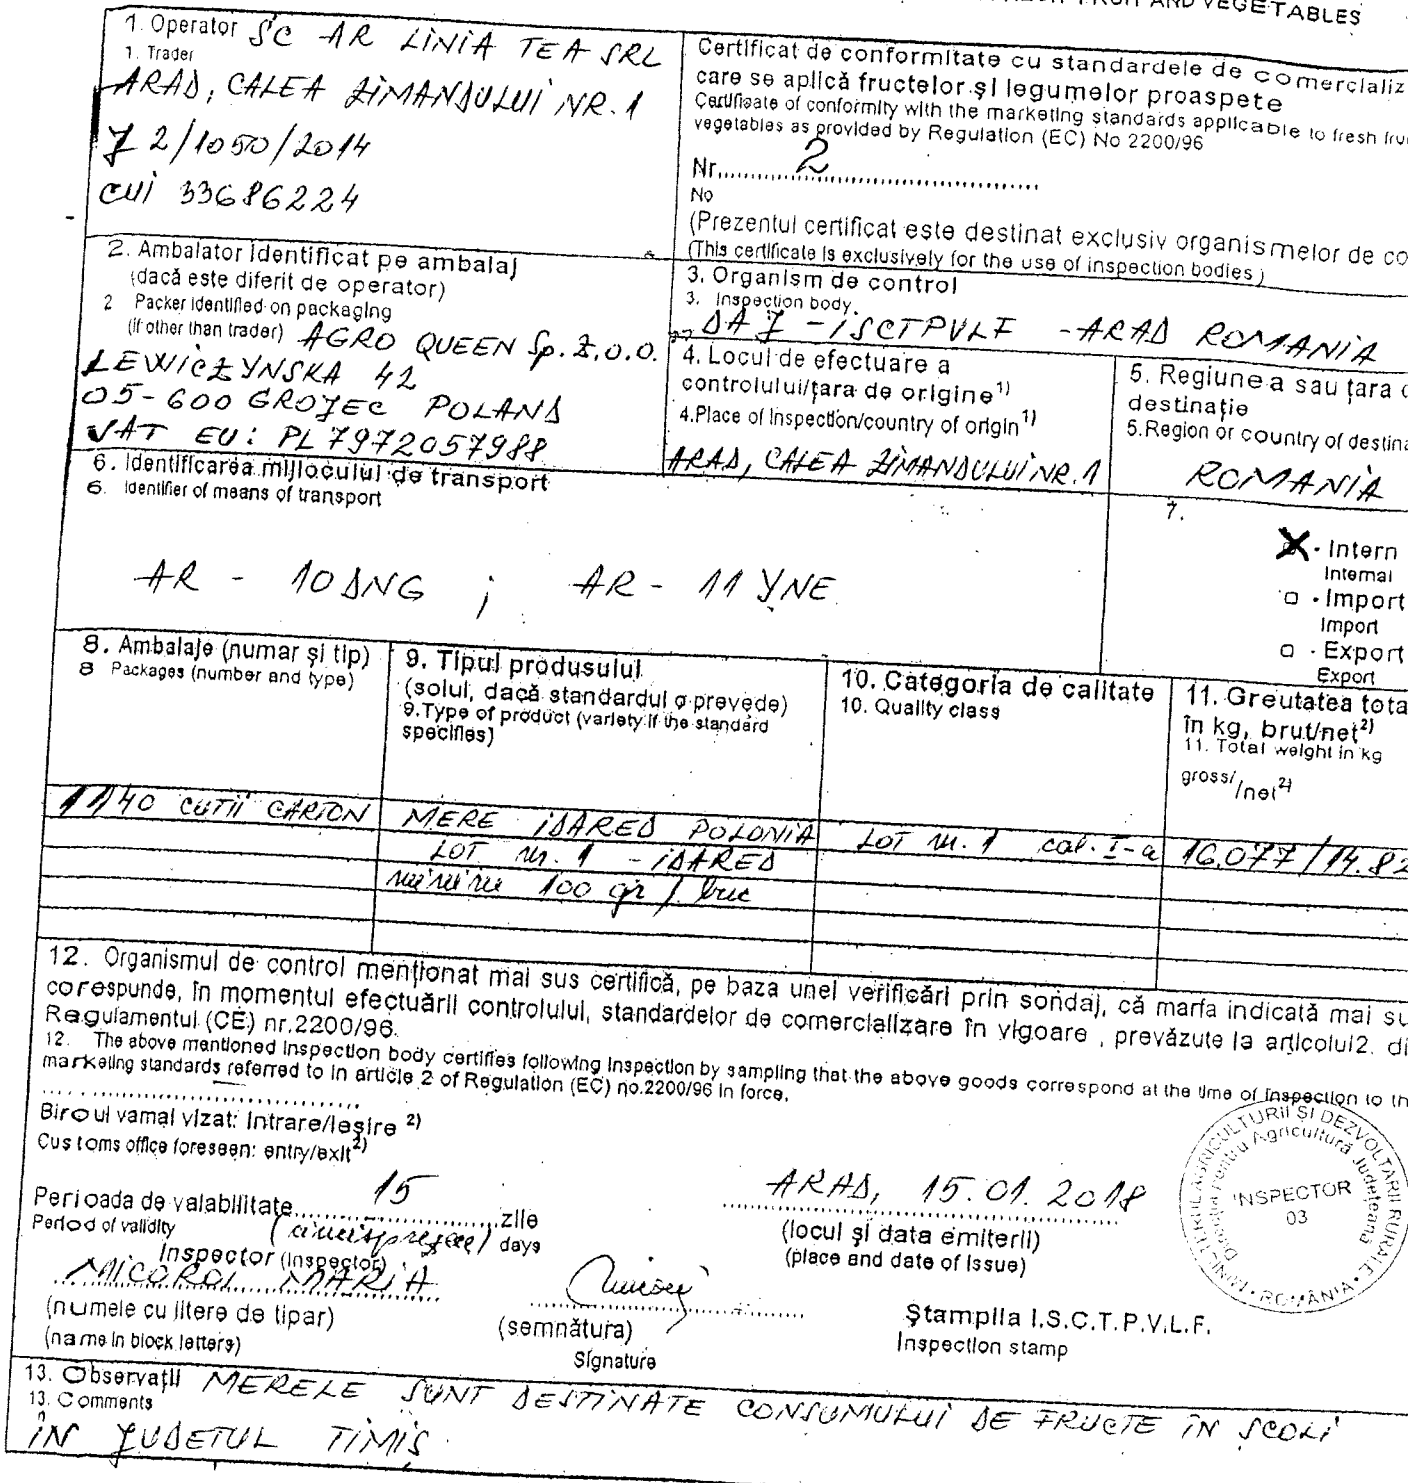 FRUIT AND VEGETABLES
1. Operator SC AR LINIA TEA SRL
1. Trader
ARAD, CALEA ZIMANDULUI NR. 1
J 2/1050/2014
CUI 33686224
Certificat de conformitate cu standardele de comercializ
care se aplică fructelor și legumelor proaspete
Certificate of conformity with the marketing standards applicable to fresh fru
vegetables as provided by Regulation (EC) No 2200/96
Nr. 2
No
(Prezentul certificat este destinat exclusiv organismelor de co
(This certificate is exclusively for the use of inspection bodies)
2. Ambalator identificat pe ambalaj
(dacă este diferit de operator)
2 Packer identified on packaging
(if other than trader) AGRO QUEEN Sp. Z.O.O.
LEWICZYNSKA 42
05-600 GROJEC POLAND
VAT EU: PL 7972057988
3. Organism de control
3. Inspection body
DAJ - ISCTPVLF - ARAD ROMANIA
4. Locul de efectuare a
controlului/țara de origine 1)
4. Place of Inspection/country of origin 1)
ARAD, CALEA ZIMANDULUI NR. 1
5. Regiunea sau țara d
destinație
5. Region or country of destina
ROMANIA
6. Identificarea mijlocului de transport
6. Identifier of means of transport
AR - 10 DNG ; AR - 11 YNE
7.
X - Intern
Internal
□ - Import
Import
□ - Export
Export
8. Ambalaje (numar și tip)
8 Packages (number and type)
9. Tipul produsului
(soiul, dacă standardul o prevede)
9. Type of product (variety if the standard
specifies)
10. Categoria de calitate
10. Quality class
11. Greutatea tota
în kg, brut/net 2)
11. Total weight in kg
gross/ /net 2)
1140 CUTII CARTON MERE IDARED POLONIA LOT nr. 1 cal. I-a 16.077/14.82
LOT nr. 1 - IDARED
minim 100 gr / buc
12. Organismul de control menționat mai sus certifică, pe baza unei verificări prin sondaj, că marfa indicată mai su
corespunde, în momentul efectuării controlului, standardelor de comercializare în vigoare, prevăzute la articolul 2. di
Regulamentul (CE) nr.2200/96.
12. The above mentioned inspection body certifies following inspection by sampling that the above goods correspond at the time of inspection to th
marketing standards referred to in article 2 of Regulation (EC) no.2200/96 in force.
Biroul vamal vizat: Intrare/Ieșire 2)
Customs office foreseen: entry/exit 2)
Perioada de valabilitate 15 zile
Period of validity (cincisprezece) days
ARAD, 15.01.2018
(locul și data emiterii)
(place and date of issue)
Inspector (Inspector)
MICOROI MARIA
(numele cu litere de tipar)
(name in block letters)
(semnătura)
Signature
Ștampila I.S.C.T.P.V.L.F.
Inspection stamp
MINISTERUL AGRICULTURII ȘI DEZVOLTĂRII RURALE • ROMÂNIA •
Direcția Pentru Agricultură Județeană
INSPECTOR
03
13. Observații MERELE SUNT DESTINATE CONSUMULUI DE FRUCTE ÎN ȘCOLI
13. Comments
ÎN JUDETUL TIMIȘ